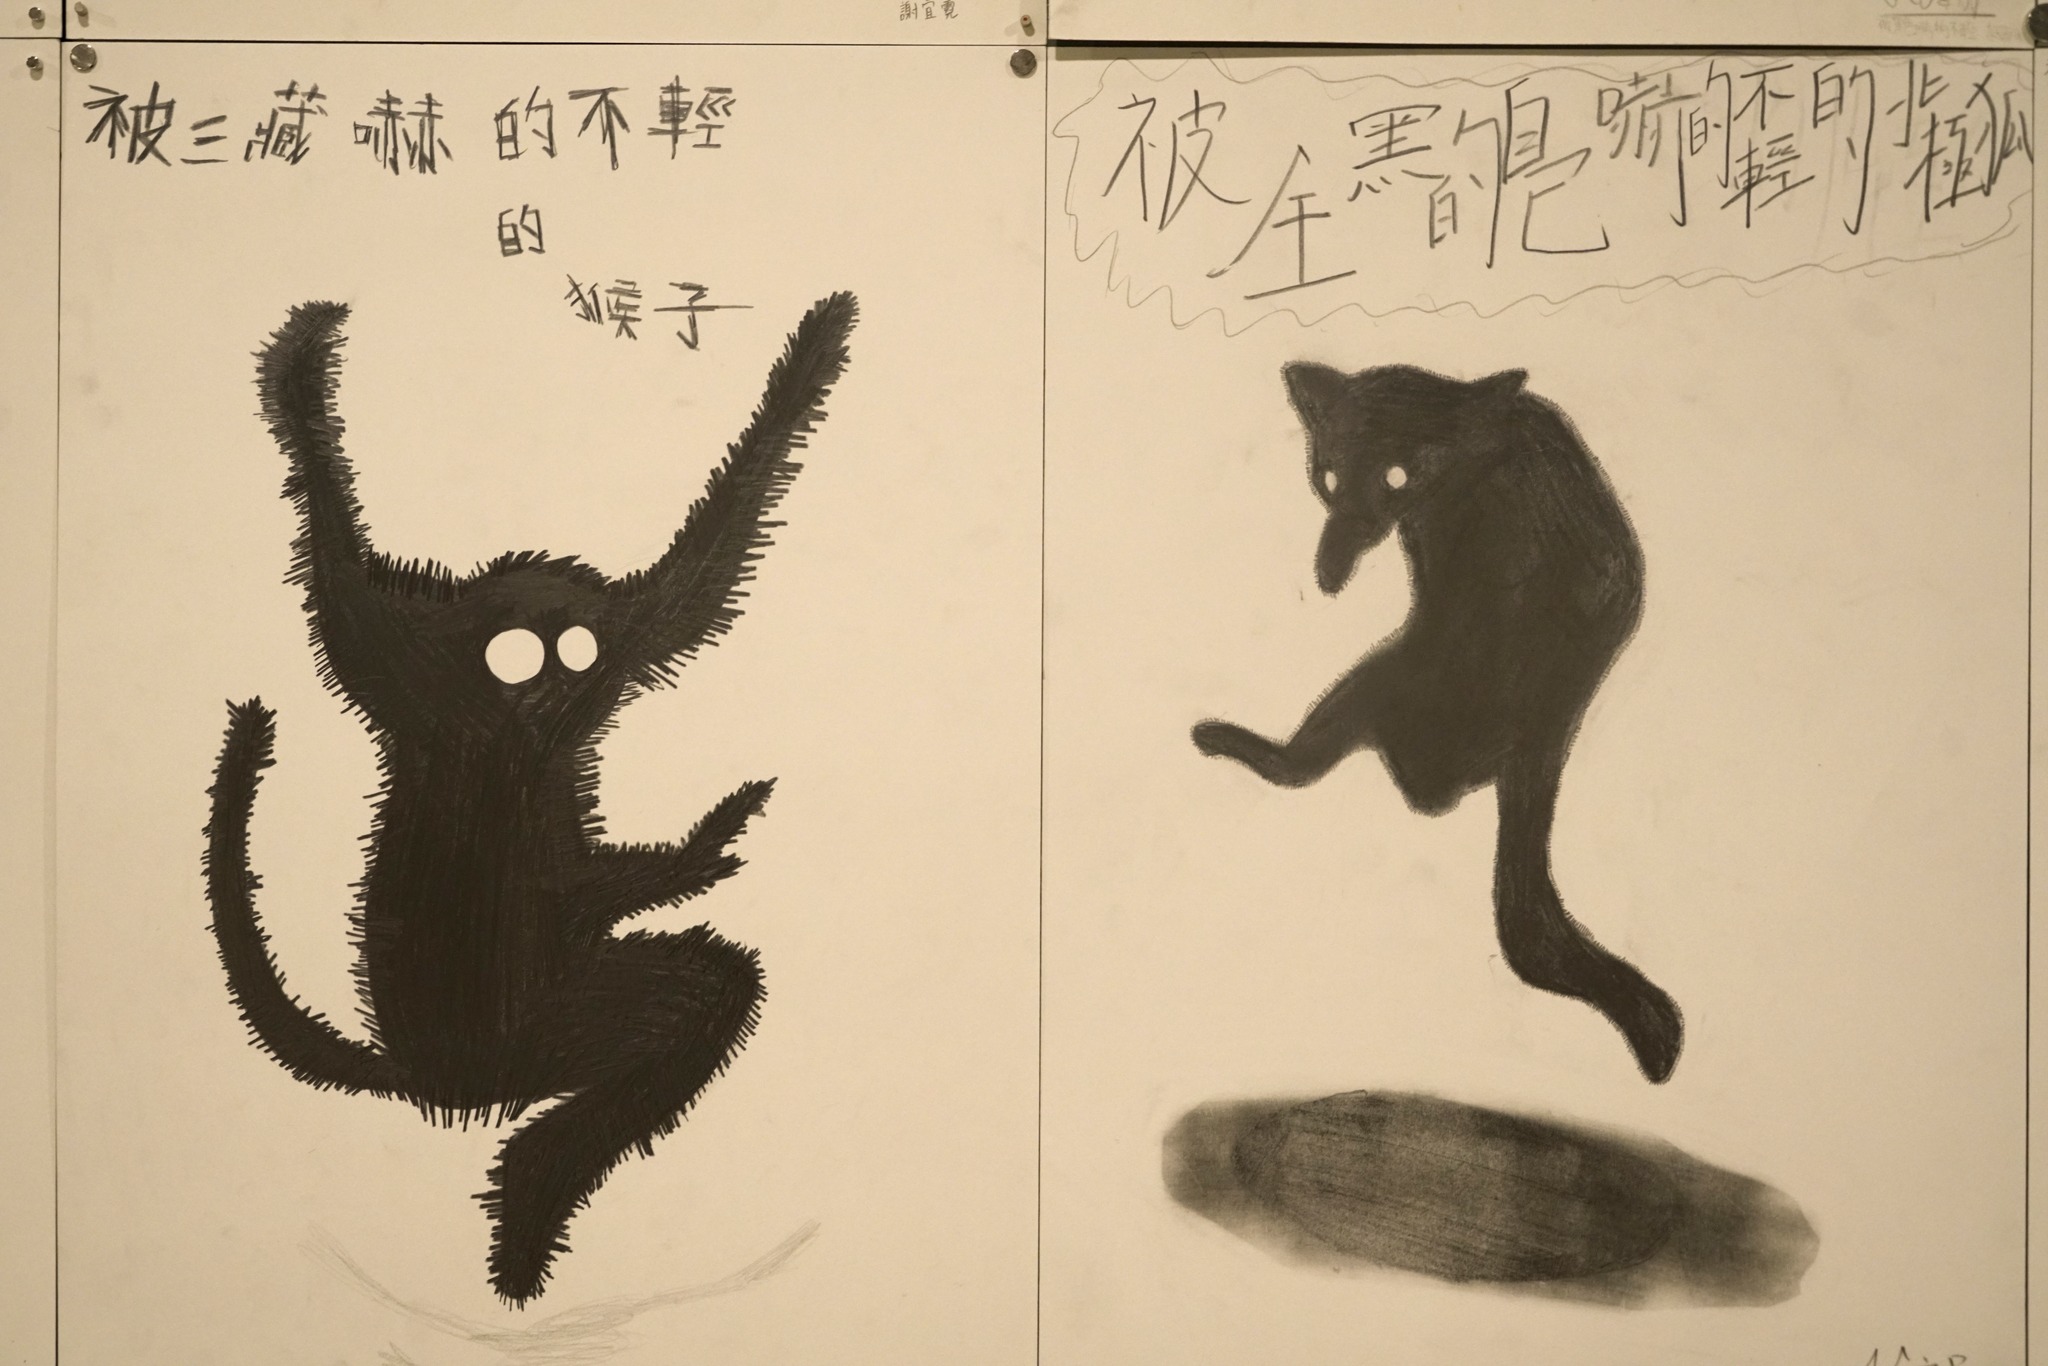 謝宜霓
被三藏嚇的不輕
的
猴子
被全黑的自己嚇的不輕的北極狐